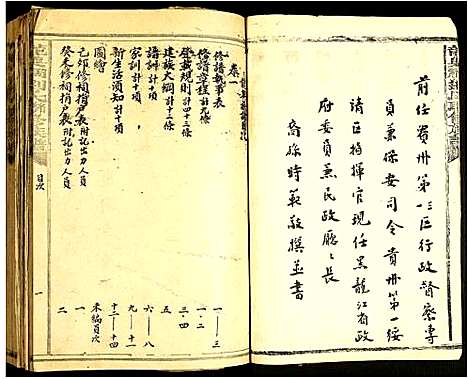 前任貴州第三區行政督察專
員兼保安司令貴州第一綏
靖區指揮官現任黑龍江省政
府委員兼民政廳廳長
裔孫時範敬撰並書
目次
卷一
修譜執事表 一—三
修譜章程計九條 一·二
登載規則計四十三條 三·四
建族大綱計 條 五
譜訓計十項 六—八
家訓計十項 九—十一
新生活須知計十項 十二—十四
圖繪 未編頁次
己卯修祠捐戶表附記出力人員 一
癸未修祠捐戶表附記出力人員 二
目次
一